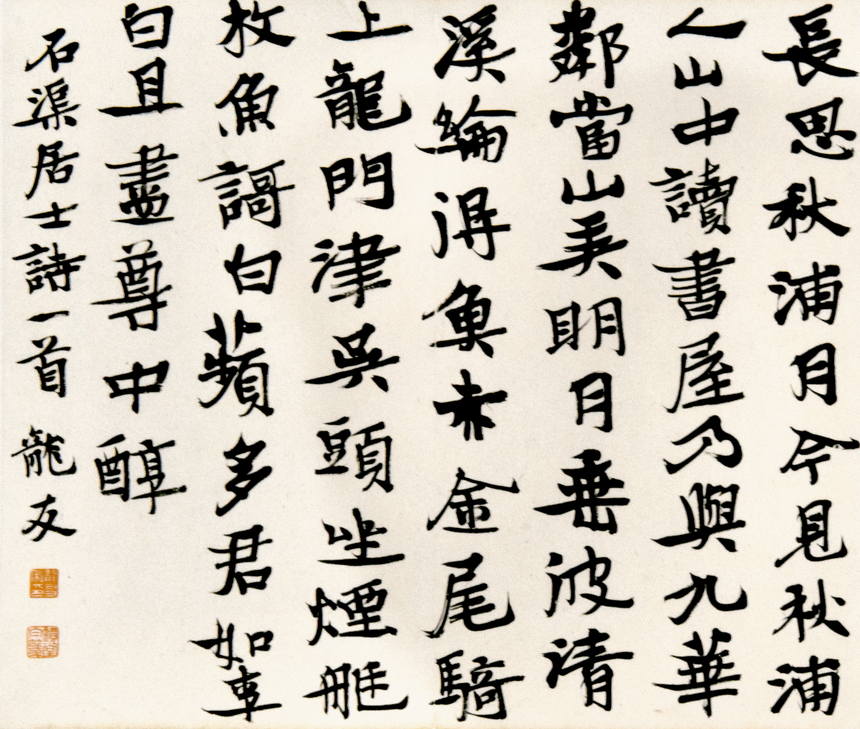 長思秋浦月今見秋浦
人山中讀書屋乃與九華
鄰當山美明月垂波清
溪綸得魚赤金尾騎
上龍門津吳頭坐煙艇
枚魚謌白蘋多君如車
白且盡尊中醇
石渠居士詩一首 龍友